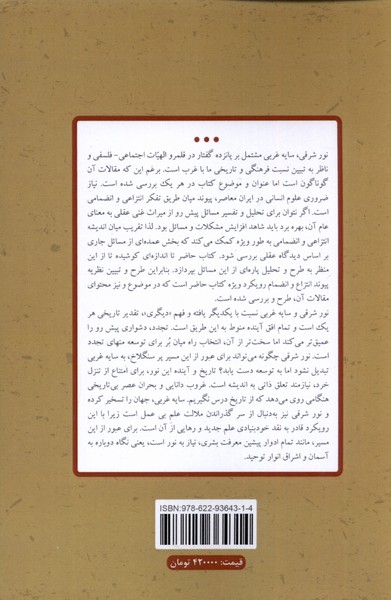 نور شرقی، سایه غربی مشتمل بر پانزده گفتار در قلمرو الهیّات اجتماعی- فلسفی و
ناظر به تبیین نسبت فرهنگی و تاریخی ما با غرب است. برغم این که مقالات آن
گوناگون است اما عنوان و موضوع کتاب در هر یک بررسی شده است. نیاز
ضروری علوم انسانی در ایران معاصر، پیوند میان طریق تفکر انتزاعی و انضمامی
است. اگر نتوان برای تحلیل و تفسیر مسائل پیش رو از میراث غنی عقلی به معنای
عام آن، بهره برد باید شاهد افزایش مشکلات و مسائل بود. لذا تقریب میان اندیشه
انتزاعی و انضمامی به طور ویژه کمک می‌کند که بخش عمده‌ای از مسائل جاری
بر اساس دیدگاه عقلی بررسی شود. کتاب حاضر تا اندازه‌ای کوشیده تا از این
منظر به طرح و تحلیل پاره‌ای از این مسائل بپردازد. بنابراین طرح و تبیین نظریه
پیوند انتزاع و انضمام رویکرد ویژه کتاب حاضر است که در موضوع و نیز محتوای
مقالات آن، طرح و بررسی شده است.
نور شرقی و سایه غربی نسبت با یکدیگر یافته و فهم «دیگری»، تقدیر تاریخی هر
یک است و تمام افق آینده منوط به این طریق است. تجدد، دشواری پیش رو را
عمیق‌تر می‌کند اما سخت‌تر از آن، انتخاب راه میان بُر برای توسعه منهای تجدد
است. نور شرقی چگونه می‌تواند برای عبور از این مسیر پر سنگلاخ، به سایه غربی
تبدیل نشود اما به توسعه دست یابد؟ تاریخ و آینده این نور، برای امتناع از تنزل
خرد، نیازمند تعلق ذاتی به اندیشه است. غروب دانایی و بحران عصر بی‌تاریخی
هنگامی روی می‌دهد که از تاریخ درس نگیریم. سایه غربی، جهان را تسخیر کرده
و نور شرقی نیز به‌دنبال از سر گذراندن ملالت علم بی عمل است زیرا با این
رویکرد قادر به نقد خودبنیادی علم جدید و رهایی از آن است. برای عبور از این
مسیر، مانند تمام ادوار پیشین معرفت بشری، نیاز به نور است، یعنی نگاه دوباره به
آسمان و اشراق انوار توحید.
ISBN:978-622-93643-1-4
قیمت: ۴۲۰۰۰۰ تومان